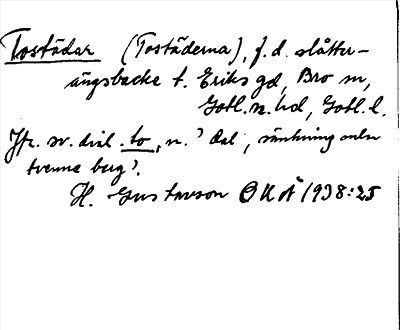 Tostädar (Tostäderna), f.d. slåtter-
ängsbacke t. Eriks gd, Bro sn,
Gotl. n. hd, Gotl. l.
Jfr. sv. dial. to, n. 'dal, sänkning mellan
tvenne berg'.
H. Gustavson OUÅ 1938:25